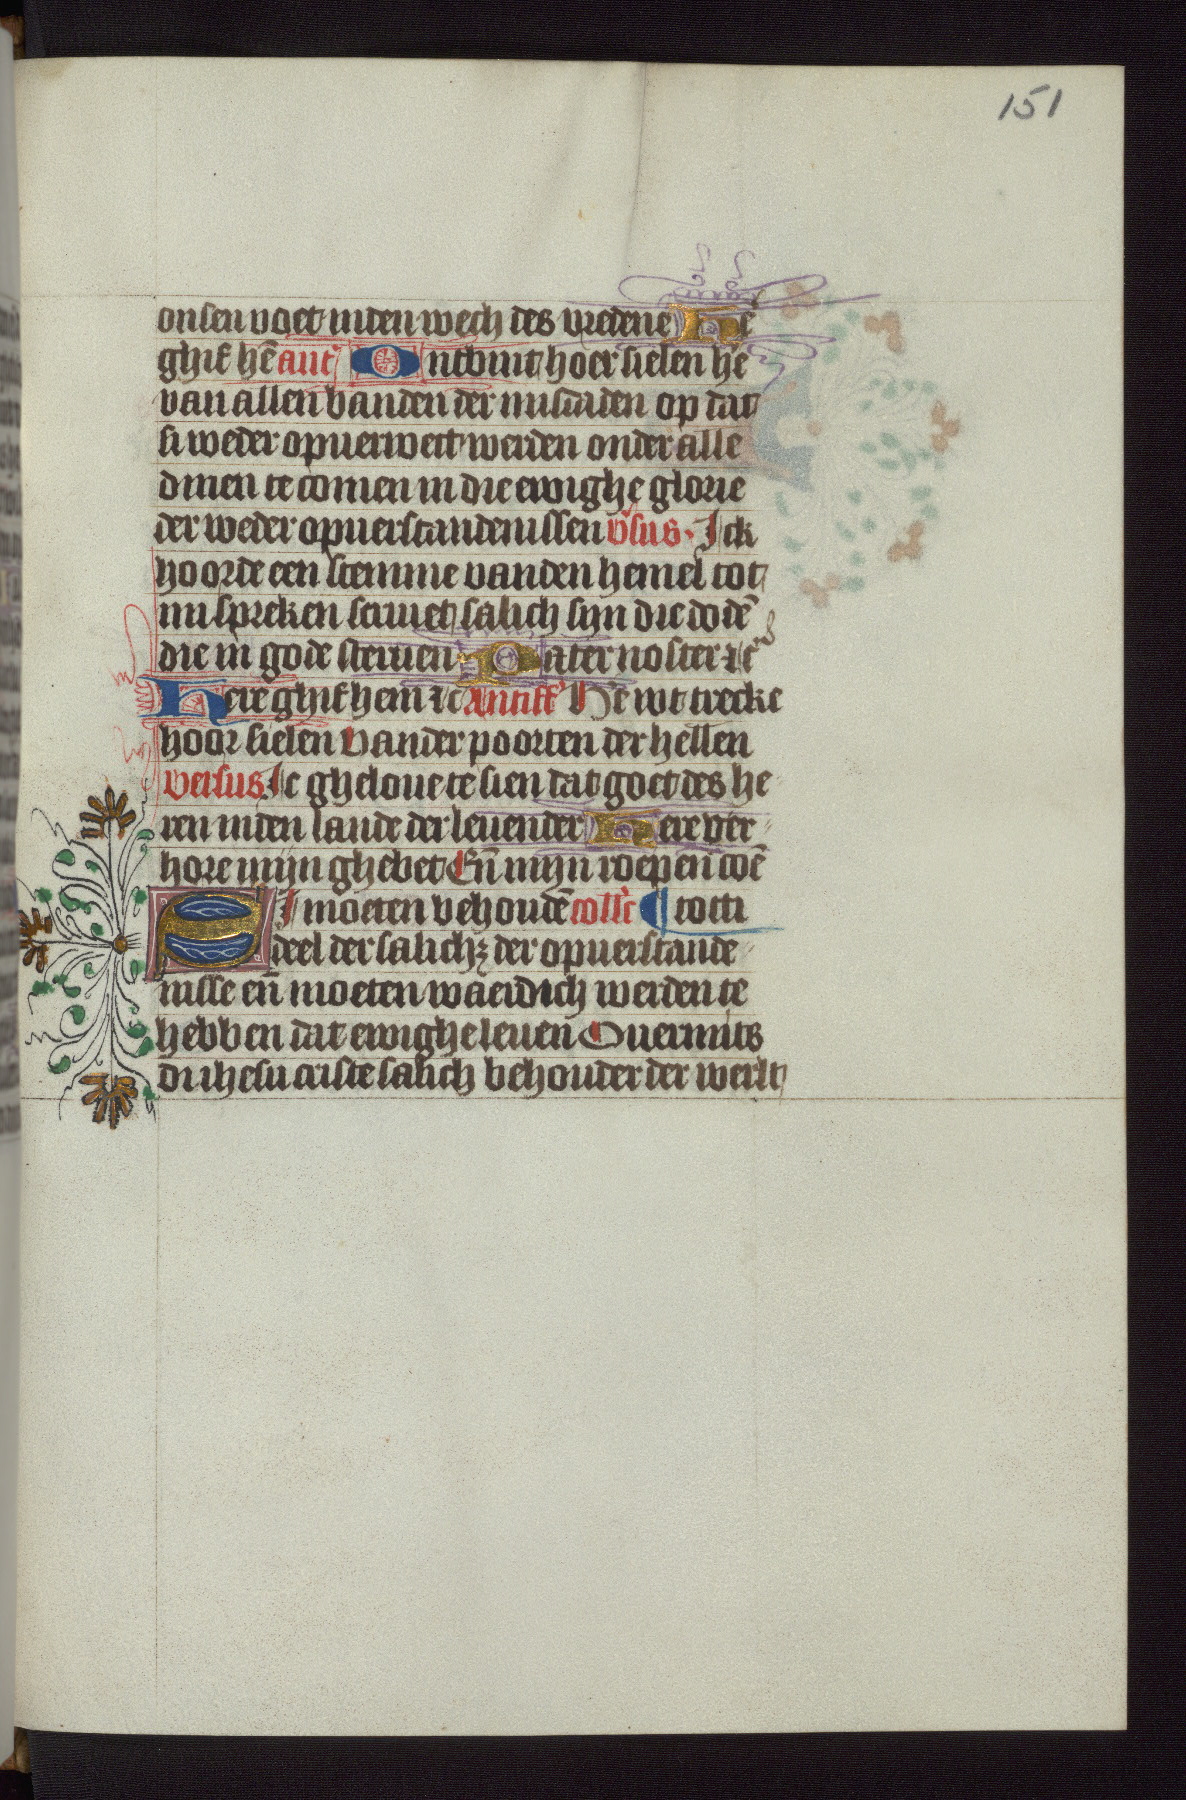 151
onsen voet inden wech des vreden e He
ghif hē ant' Ontbint hoer sielen hē
van allen banden der misdaden op dat
si weder opuerwect werden onder alle
dinen te comen in die ewighe glorie
der weder opuerstandenissen v̄sus. Ick
hoorde een stemme vanden hemel tot
mi spreken scriuet salich sijn die dodē
die in gode steruen Pater noster ⁊c̄
Here ghif hem ⁊c Antiff' Hē wt trecke
hoor sielen vander poorten der hellen
versus Ic gheloue te sien dat goet des he
ren inden lande der leuender Here ver
hore mijn ghebet Eñ mijn roepen coē
Si moeten behoudē coll'c ¶ totti
deel der salichꝫ der opuerstande
nisse eñ moeten waerdich werden te
hebben dat ewighe leuen Ouermits
di ihesu criste salich behouder der werlt